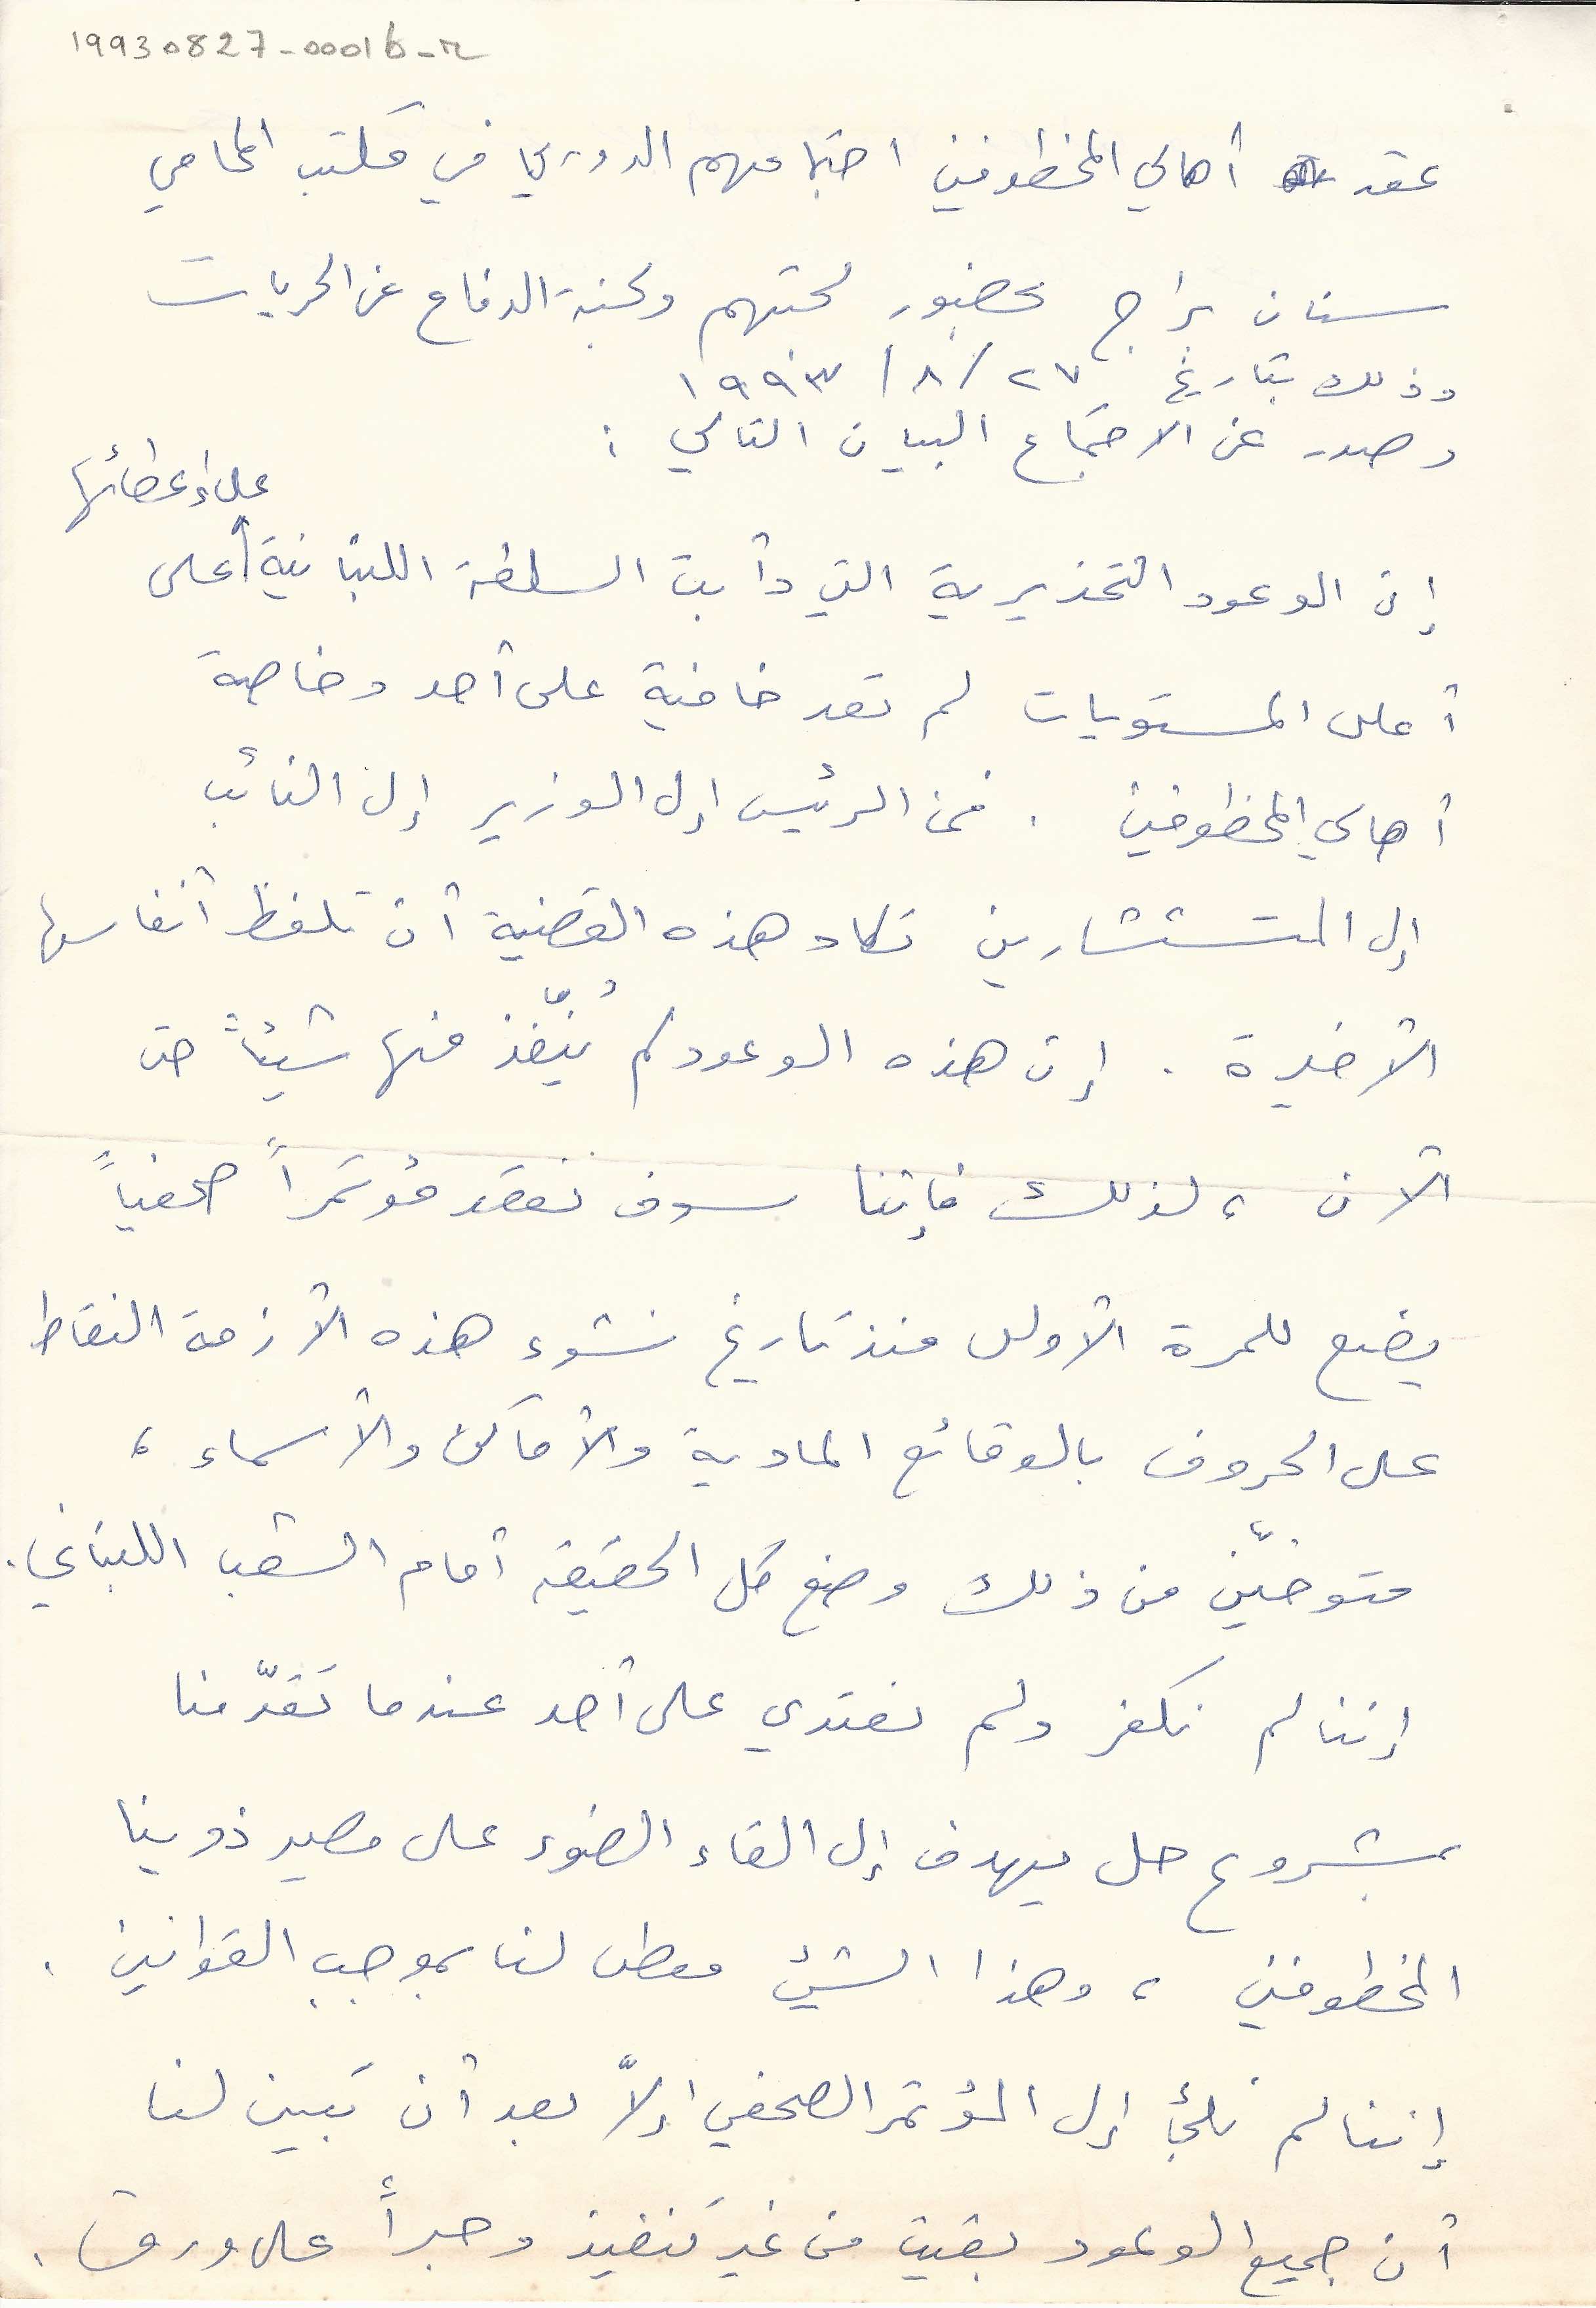 19930827-00016-r
عقد أهالي المخطوفين اجتماعهم الدوري في مكتب المحامي
سنان براج بحضور لجنتهم ولجنة الدفاع عن الحريات
وذلك بتاريخ ٢٧ / ٨ / ١٩٩٣
وصدر عن الاجتماع البيان التالي :
على إعطائها
إن الوعود التخديرية التي دأبت السلطة اللبنانية على
أعلى المستويات لم تعد خافية على أحد وخاصة
أهالي المخطوفين . فمن الرئيس إلى الوزير إلى النائب
إلى المستشارين تكاد هذه القضية أن تلفظ أنفاسها
الأخيرة . إن هذه الوعود لم يُنفّذ منها شيئاً حتى
الآن ، لذلك فإننا سوف نعقد مؤتمراً صحفياً
يضع للمرة الأولى منذ تاريخ نشوء هذه الأزمة النقاط
على الحروف بالوقائع المادية والأماكن والأسماء ،
متوخّين من ذلك وضع كل الحقيقة أمام الشعب اللبناني .
إننا لم نكفر ولم نعتدي على أحد عندما تقدّمنا
بمشروع حل يهدف إلى القاء الضوء على مصير ذوينا
المخطوفين ، وهذا الشيء معطى لنا بموجب القوانين .
إننا لم نلجأ إلى المؤتمر الصحفي إلاّ بعد أن تبين لنا
أن جميع الوعود بقيت من غير تنفيذ وحبراً على ورق .